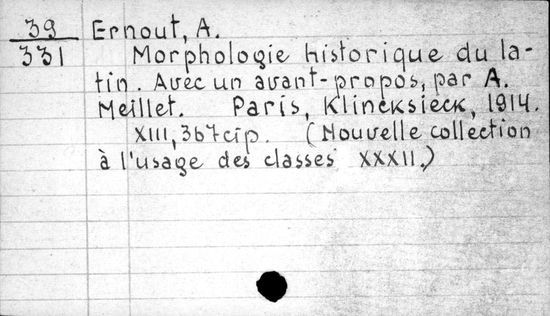 39 Ernout, A.
331 Morphologie historique du la-
tin. Avec un avant-propos, par A.
Meillet. Paris, Klincksieck, 1914.
XIII, 367 с‍ip. (Nouvelle collection
à l'usage des classes XXXII.)